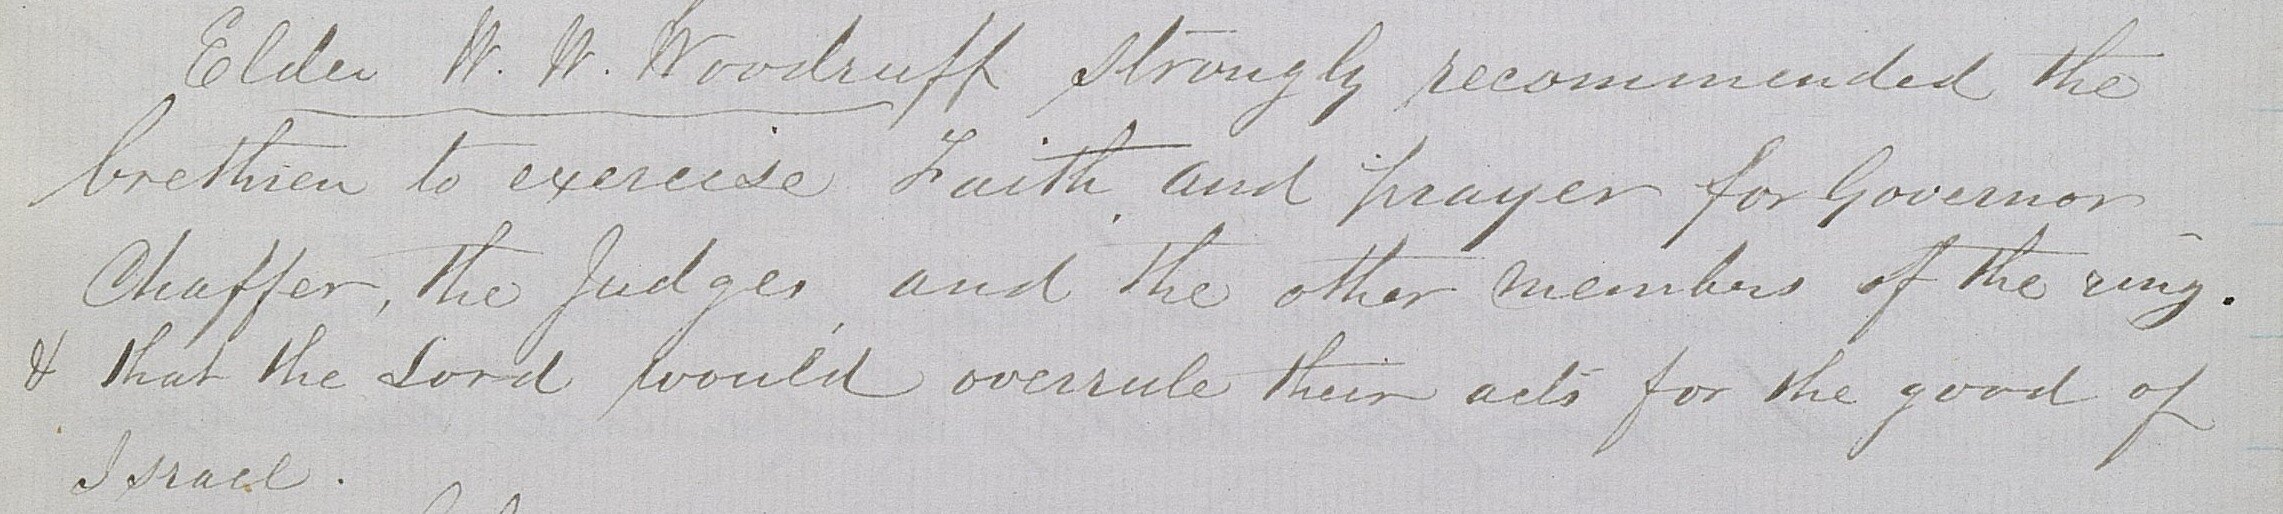 Elder W. W. Woodruff strongly recommended the
brethren to exercise Faith and prayer for Governor
Chaffer, the Judges, and the other members of the ring.
& that the Lord would overrule their acts for the good of
Israel.